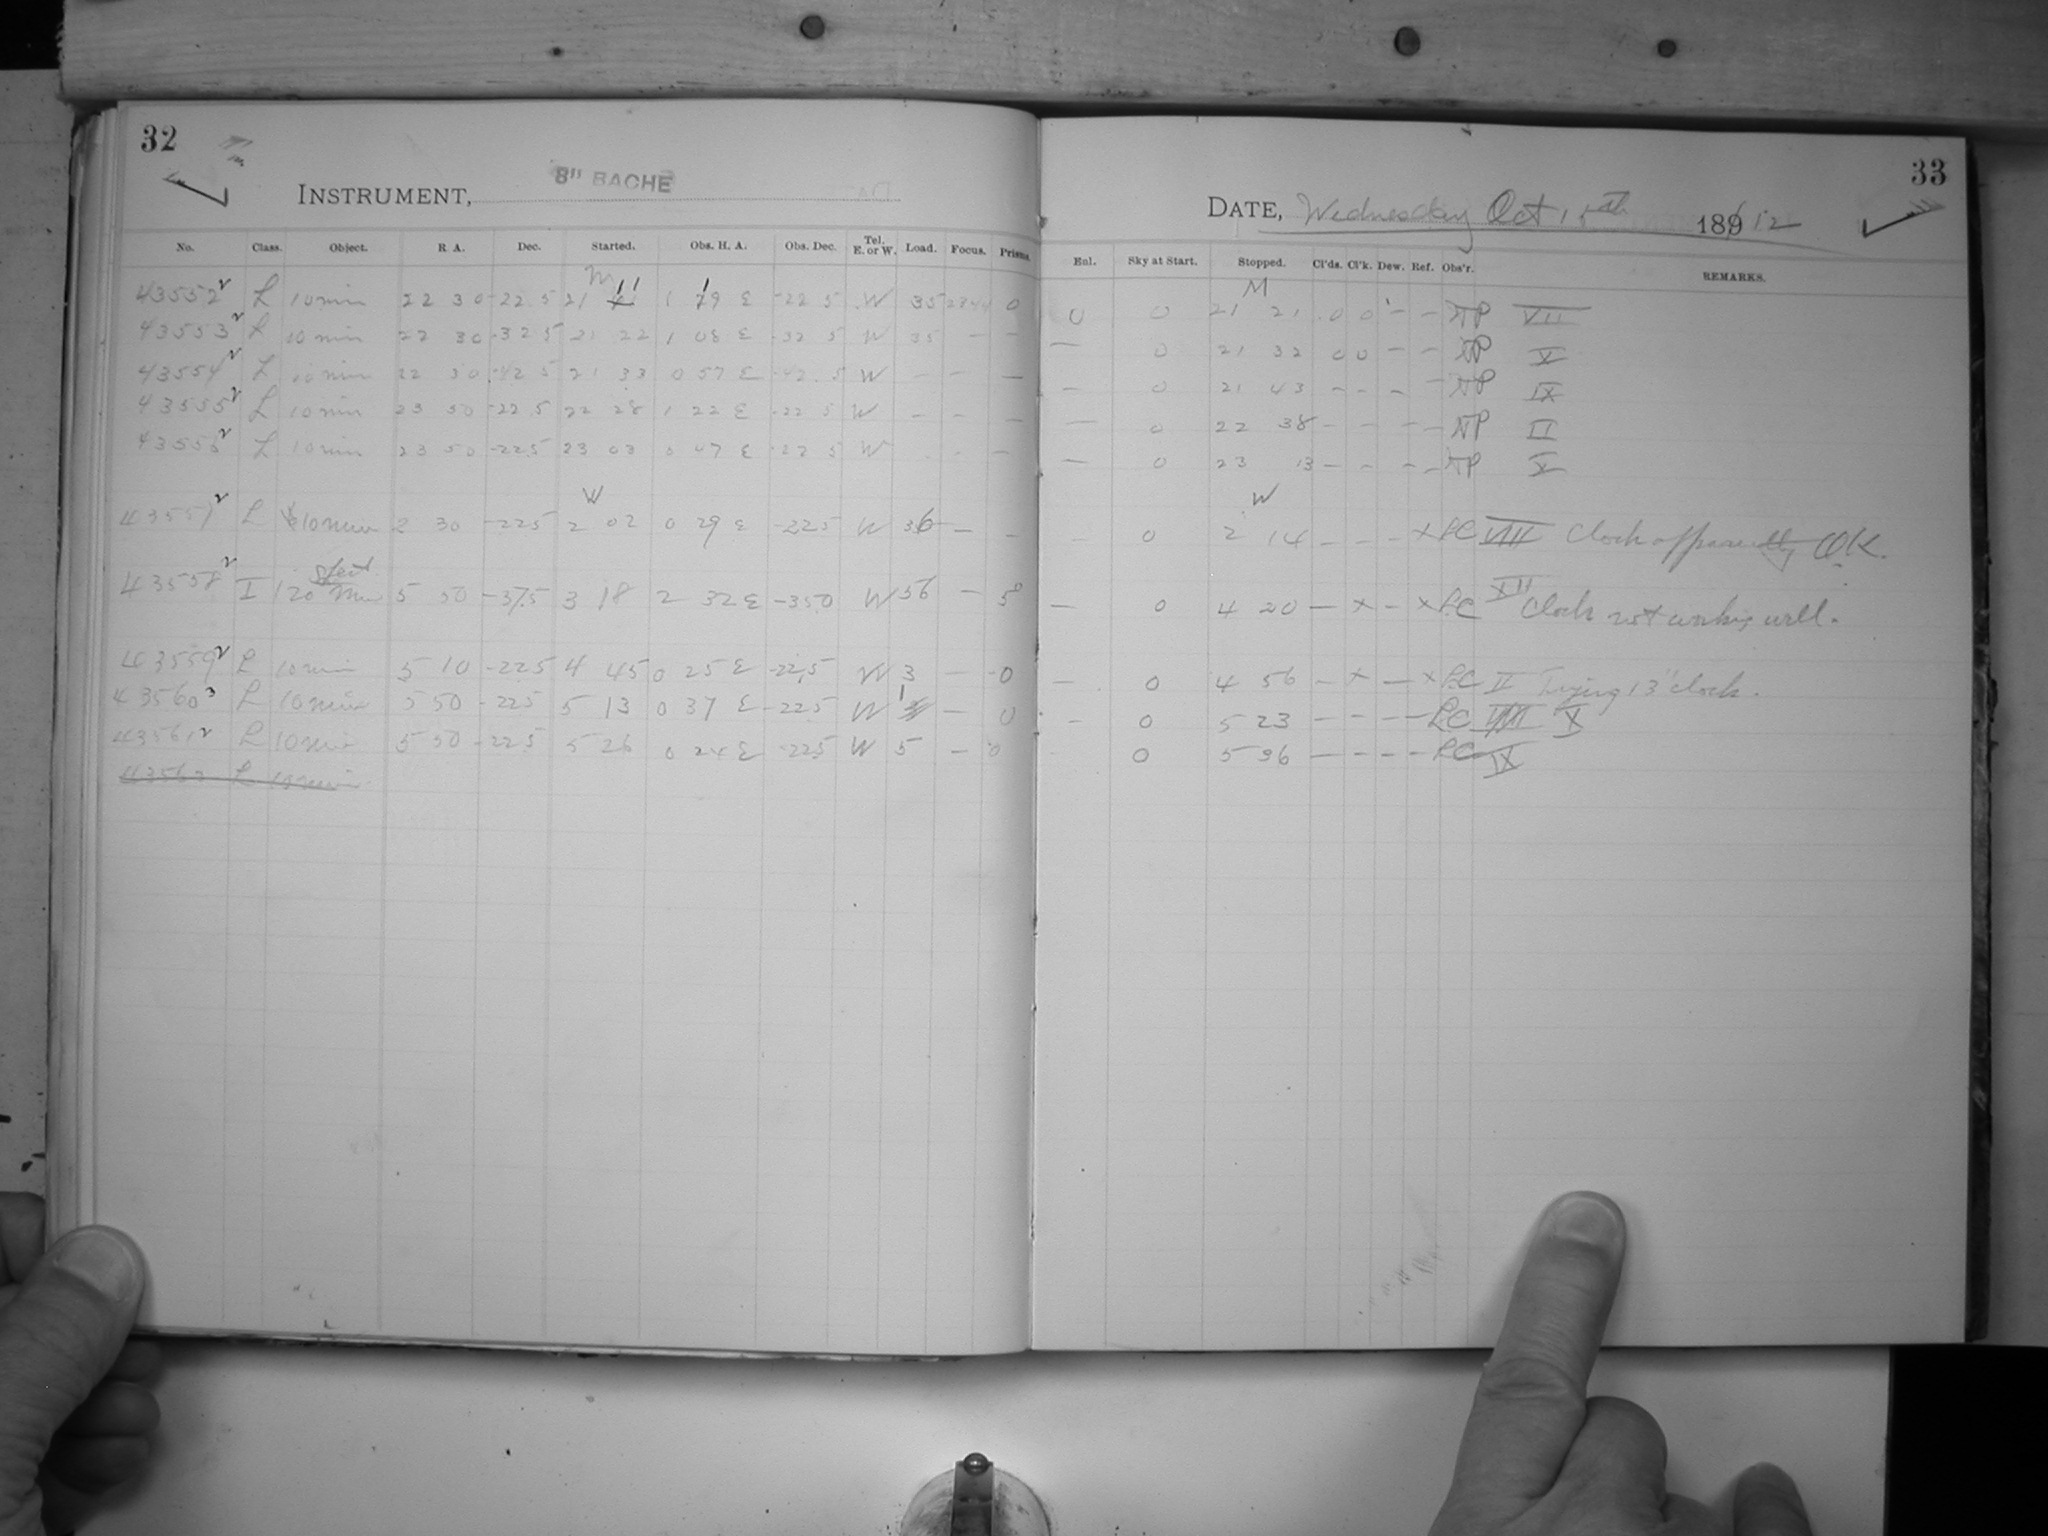 32
INSTRUMENT, 8" BACHE
No. Class. Object. R A. Dec. Started. Obs. H. A. Obs. Dec. Tel. E. or W. Load. Focus. Prisms.
M
43552 L 10 min 22 30 -22 5 21 11 1 19 E -22 5 W 35 0
43553 L 10 min 22 30 -32 5 21 22 1 08 E -32 5 W 35 — —
43554 L 10 min 22 30 -42 5 21 33 0 57 E -42 5 W — — —
43555 L 10 min 23 50 -22 5 22 28 1 22 E -22 5 W — — —
43556 L 10 min 23 50 -22 5 23 03 0 47 E -22 5 W — —
W
43557 L 10 min 2 30 -225 2 02 0 29 E -225 W 36 — —
43558 I 120 min 5 50 -37.5 3 18 2 32 E -350 W 56 —
43559 L 10 min 5 10 -225 4 45 0 25 E -22,5 W 3 — 0
43560 L 10 min 5 50 -225 5 13 0 37 E -225 W — 0
43561 L 10 min 5 50 -225 5 26 0 24 E -225 W 5 — 0
L 10 min
33
DATE, Wednesday Oct 189 12
Enl. Sky at Start. Stopped. Cl'ds. Cl'k. Dew. Ref. Obs'r. REMARKS.
M
0 0 21 21 0 0 — — VII
— 0 21 32 0 0 — — V
— 0 21 43 — — — — IX
— 0 22 38 — — — — II
— 0 23 13 — — — — V
W
— 0 2 14 — — — x LC VIII Clock apparently O.K.
— 0 4 20 — x — x LC XII Clock not working well.
— 0 4 56 — x — x LC II Trying 13" clock.
— 0 5 23 — — — — LC X
0 5 36 — — — — LC IX